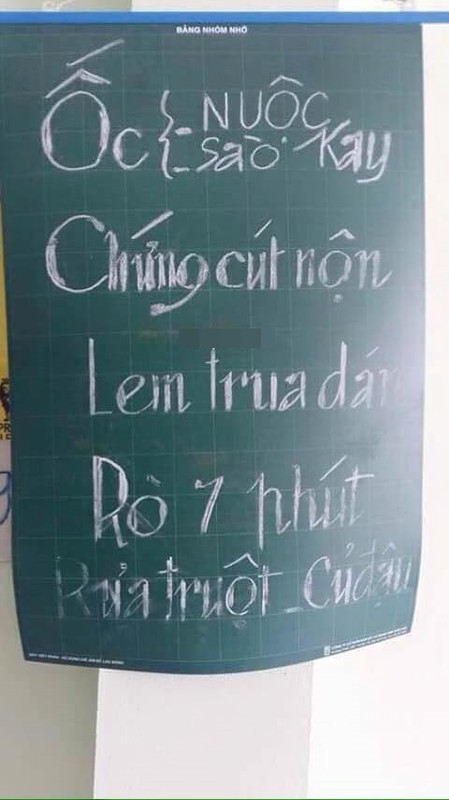 BẢNG NHÓM NHỎ
Ốc { - NUỘC
- Sào Kay
Chứng cút nộn
Lem trua dán
Rò 7 phút
Rưả truột - Củ dậu